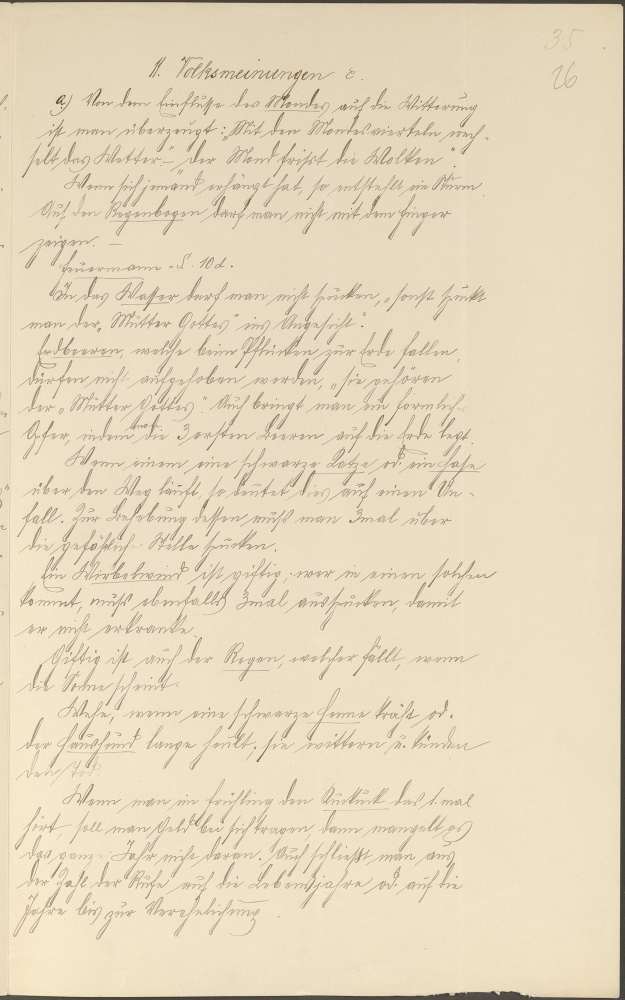 35
26
11. Volksmeinungen &.
a.) Von dem Einflusse des Mondes auf die Witterung
ist man überzeugt: „Mit den Mondesvierteln wech-
selt das Wetter" – „der Mond frisst die Wolken".
Wenn sich jemand erhängt hat, so entsteht ein Sturm.
Auf den Regenbogen darf man nicht mit dem Finger
zeigen. –
Feuermann - S. 10 d.
In das Wasser darf man nicht spucken, „sonst spuckt
man der „Mutter Gottes" ins Angesicht".
Erdbeeren, welche beim Pflücken zur Erde fallen,
dürfen nicht aufgehoben werden, „sie gehören
der „Mutter Gottes". Auch bringt man ein förmlich.
Opfer, indem man die 3 ersten Beeren auf die Erde legt.
Wenn einem eine schwarze Katze od. ein Hase
über den Weg läuft, so deutet dies auf einen Un-
fall. Zur Behebung dessen muß man 3mal über
die gefährlich. Stelle spucken.
Ein Wirbelwind ist giftig; wer in einen solchen
kommt, muß ebenfalls 3mal ausspucken, damit
er nicht erkranke.
Giftig ist auch der Regen, welcher fällt, wenn
die Sonne scheint.
Wehe, wenn eine schwarze Henne kräht od.
der Haushund lange heult; sie wittern u. künden
den Tod.
Wenn man im Frühling den Kuckuck das 1. mal
hört, soll man Geld bei sich tragen, dann mangelt es
das ganze Jahr nicht daran. Auch schließt man aus
der Zahl der Rufe auf die Lebensjahre od. auf die
Jahre bis zur Verehelichung.